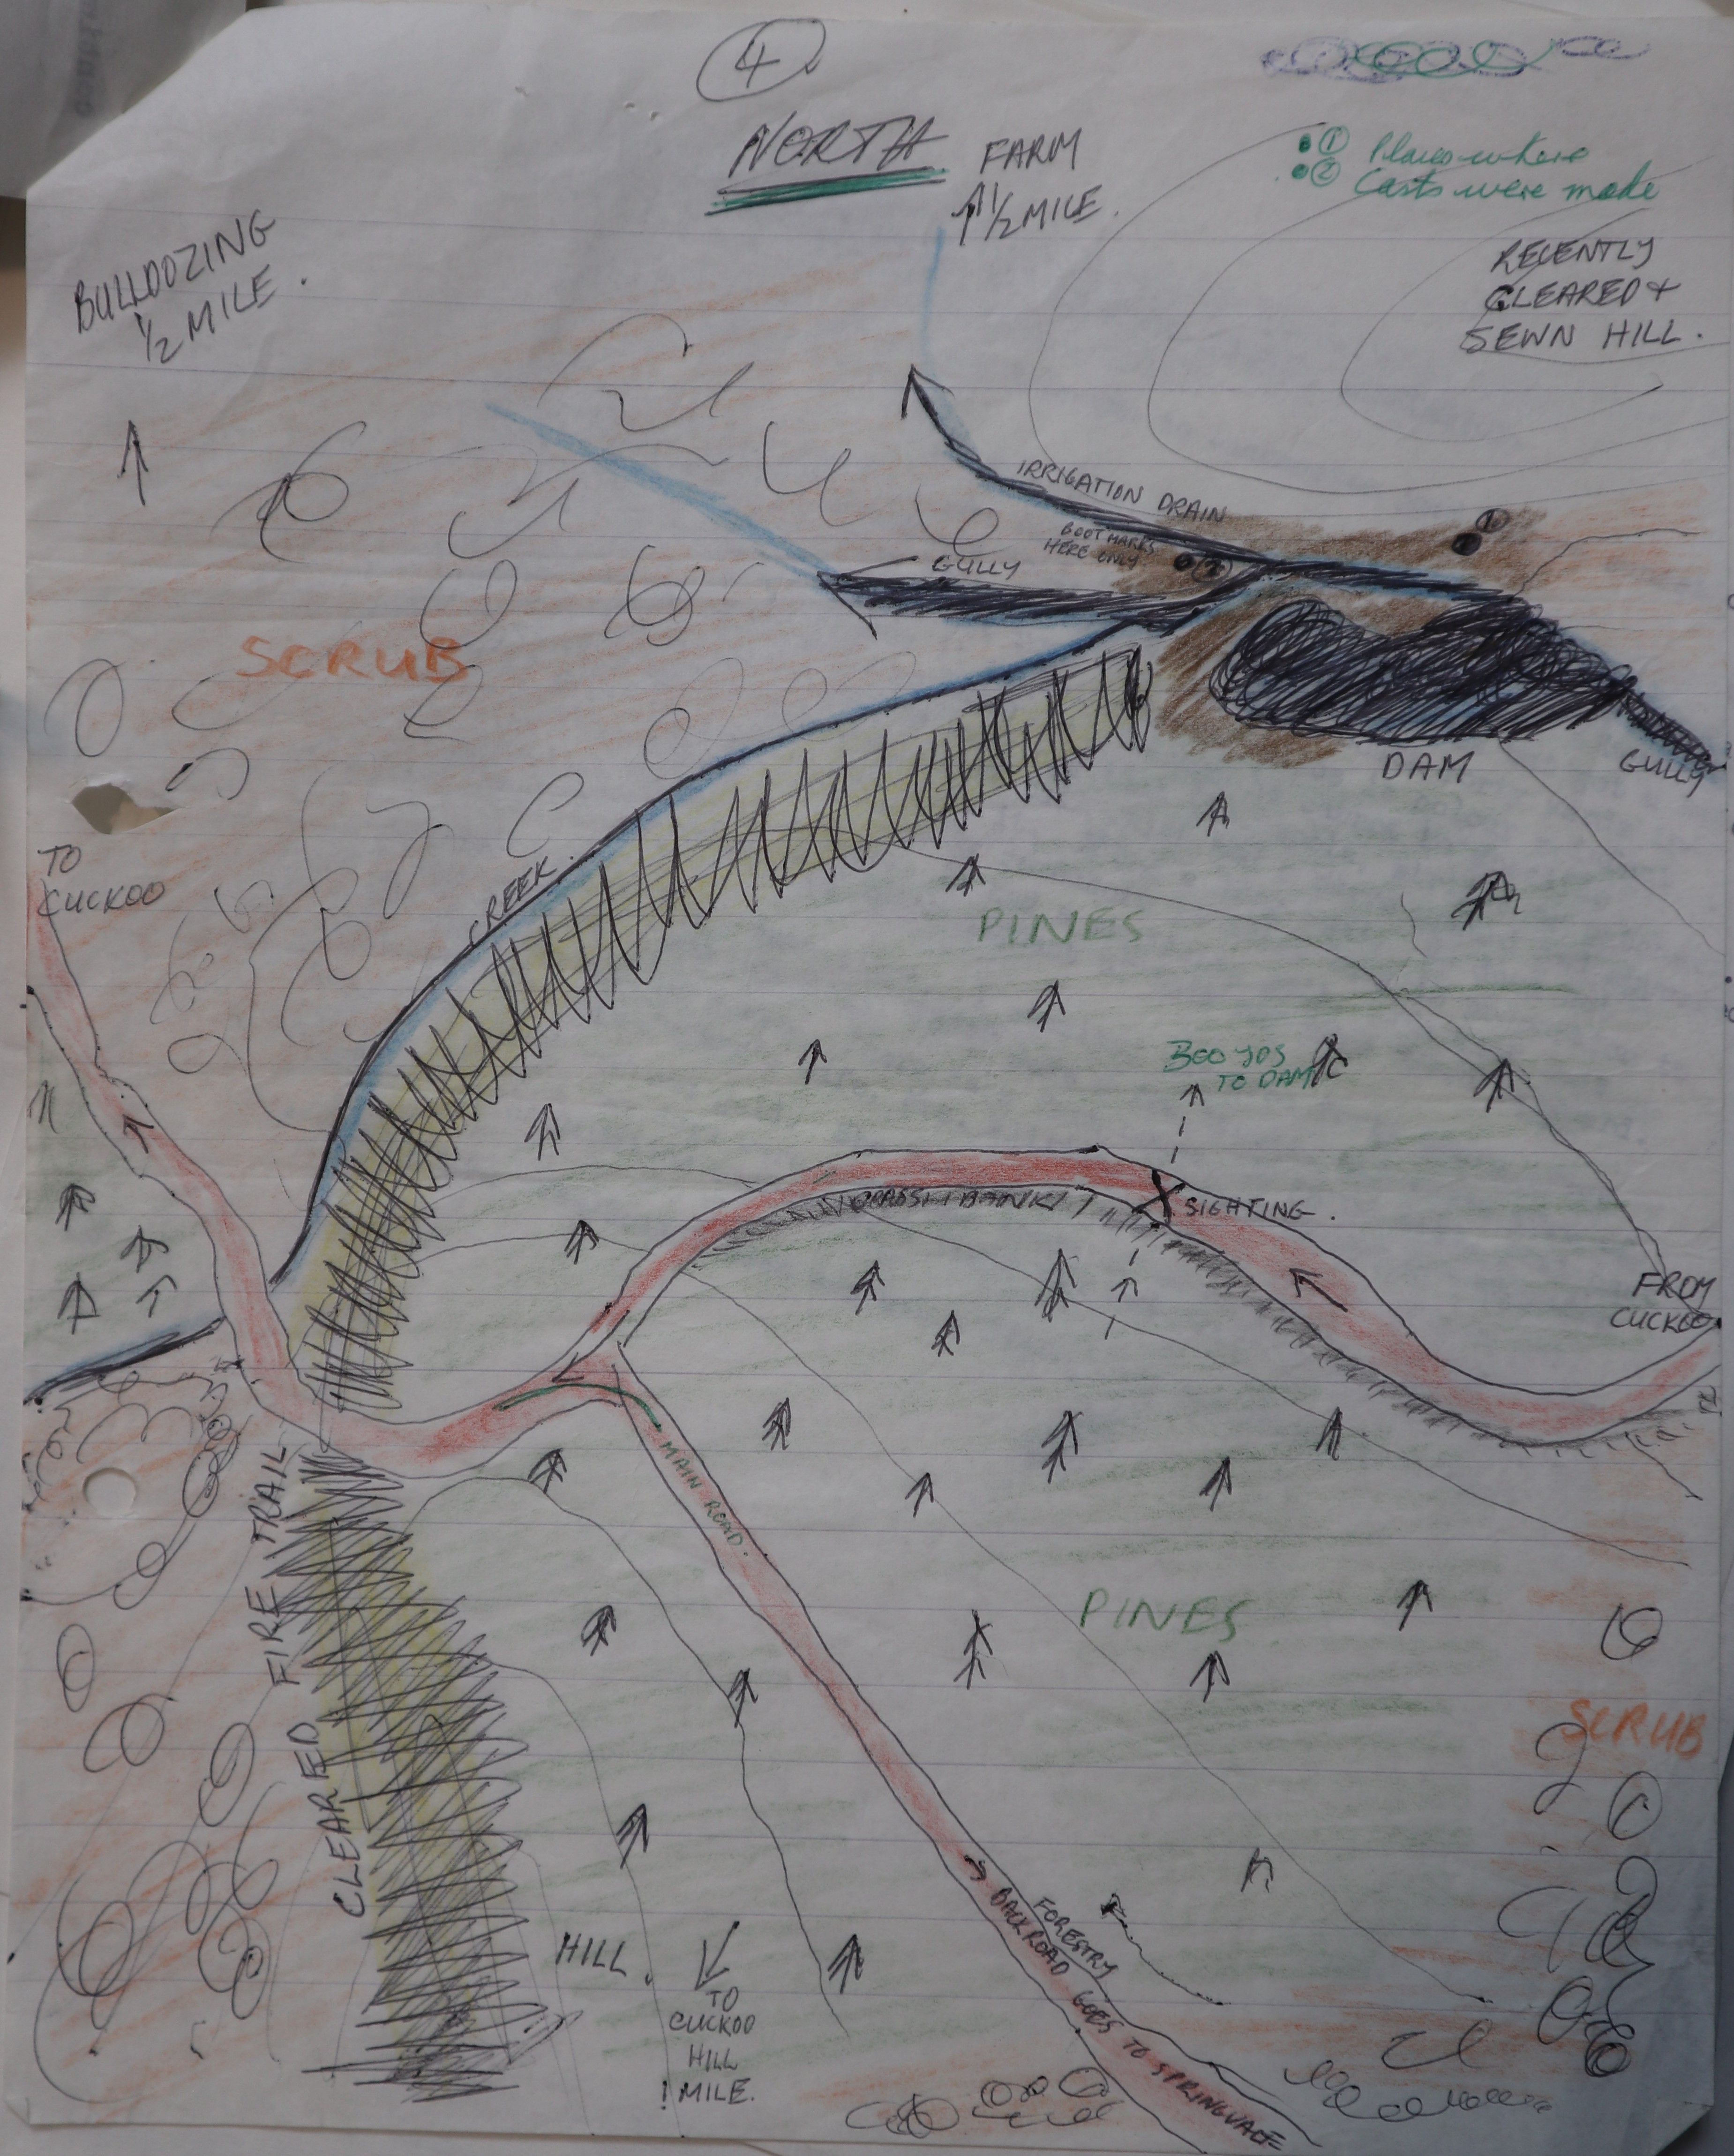 4
NORTH
FARM
1/2 MILE.
1 Places where
2 Casts were made
RECENTLY
CLEARED +
SEWN HILL.
BULLDOZING
1/2 MILE.
IRRIGATION DRAIN
BOOT MARKS
HERE ONLY
1
2
GULLY
SCRUB
DAM
GULLY
TO
CUCKOO
CREEK.
PINES
TO DAM
GRASSY BANK
X SIGHTING.
FROM
CUCKOO
MAIN ROAD.
CLEARED FIRE TRAIL
PINES
SCRUB
HILL.
TO
CUCKOO
HILL
1 MILE.
FORESTRY
BACKROAD GOES TO SPRINGVALE